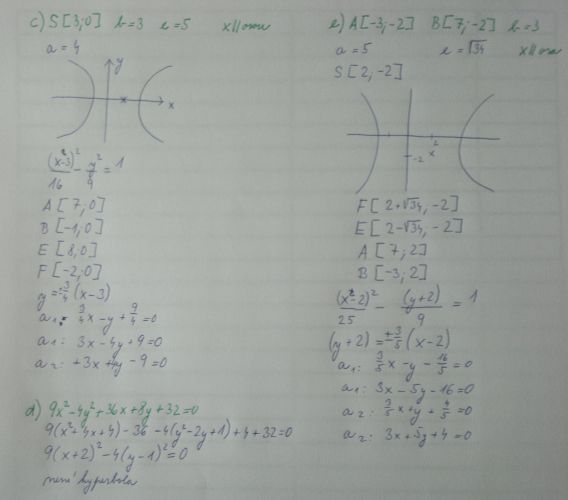 c) S[3;0] b=3 e=5 x||osou
a=4
y
x
(x-3)²/16 - y²/9 = 1
A[7;0]
B[-1;0]
E[8;0]
F[-2;0]
y=±3/4(x-3)
a₁: 3/4x-y+9/4=0
a₁: 3x-4y+9=0
a₂: +3x+4y-9=0
d) 9x²-4y²+36x+8y+32=0
9(x²+4x+4)-36-4(y²-2y+1)+4+32=0
9(x+2)²-4(y-1)²=0
není hyperbola
e) A[-3;-2] B[7;-2] b=3
a=5 e=√34 x||osa
S[2;-2]
2
-2 x
F[2+√34;-2]
E[2-√34;-2]
A[7;2]
B[-3;2]
(x-2)²/25 - (y+2)/9 = 1
(y+2)=±3/5(x-2)
a₁: 3/5x-y-16/5=0
a₁: 3x-5y-16=0
a₂: 3/5x+y+4/5=0
a₂: 3x+5y+4=0